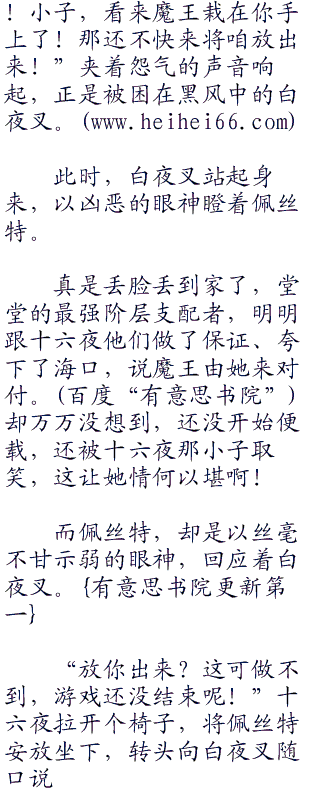 ！小子，看来魔王栽在你手
上了！那还不快来将咱放出
来！”夹着怨气的声音响
起，正是被困在黑风中的白
夜叉。(www.heihei66.com)
此时，白夜叉站起身
来，以凶恶的眼神瞪着佩丝
特。
真是丢脸丢到家了，堂
堂的最强阶层支配者，明明
跟十六夜他们做了保证、夸
下了海口，说魔王由她来对
付。(百度“有意思书院”)
却万万没想到，还没开始便
载，还被十六夜那小子取
笑，这让她情何以堪啊！
而佩丝特，却是以丝毫
不甘示弱的眼神，回应着白
夜叉。{有意思书院更新第
一}
“放你出来？这可做不
到，游戏还没结束呢！”十
六夜拉开个椅子，将佩丝特
安放坐下，转头向白夜叉随
口说